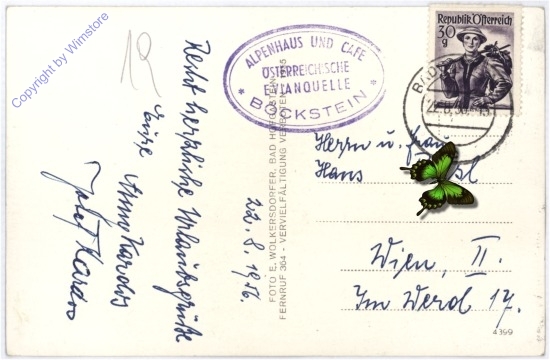 Copyright by Wimstore
12
Recht herzliche Urlaubsgrüße
Eure Anno Karolus
22. 8. 1956.
ALPENHAUS UND CAFE
ÖSTERREICHISCHE
BÖCKSTEIN
FOTO E. WOLKERSDORFER, BAD HOFGASTEIN
FERNRUF 364 - VERVIELFÄLTIGUNG VERBOTEN
Republik Österreich
30
g
Herrn u. Frau
Hans
Wien, II.
Im Werd 17.
4399